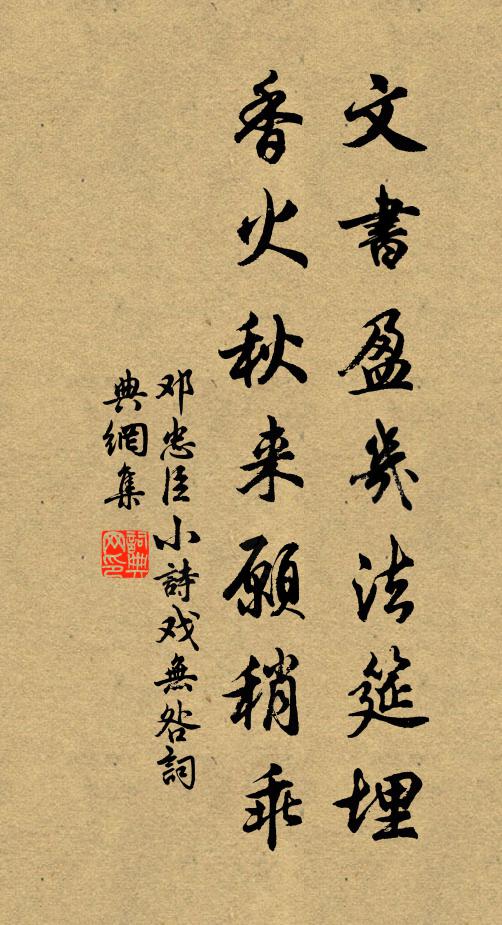 文書盈幾法筵埋
香火秋来願稍乖
邓忠臣小詩戏無咎詞
典網集
詞典
网印